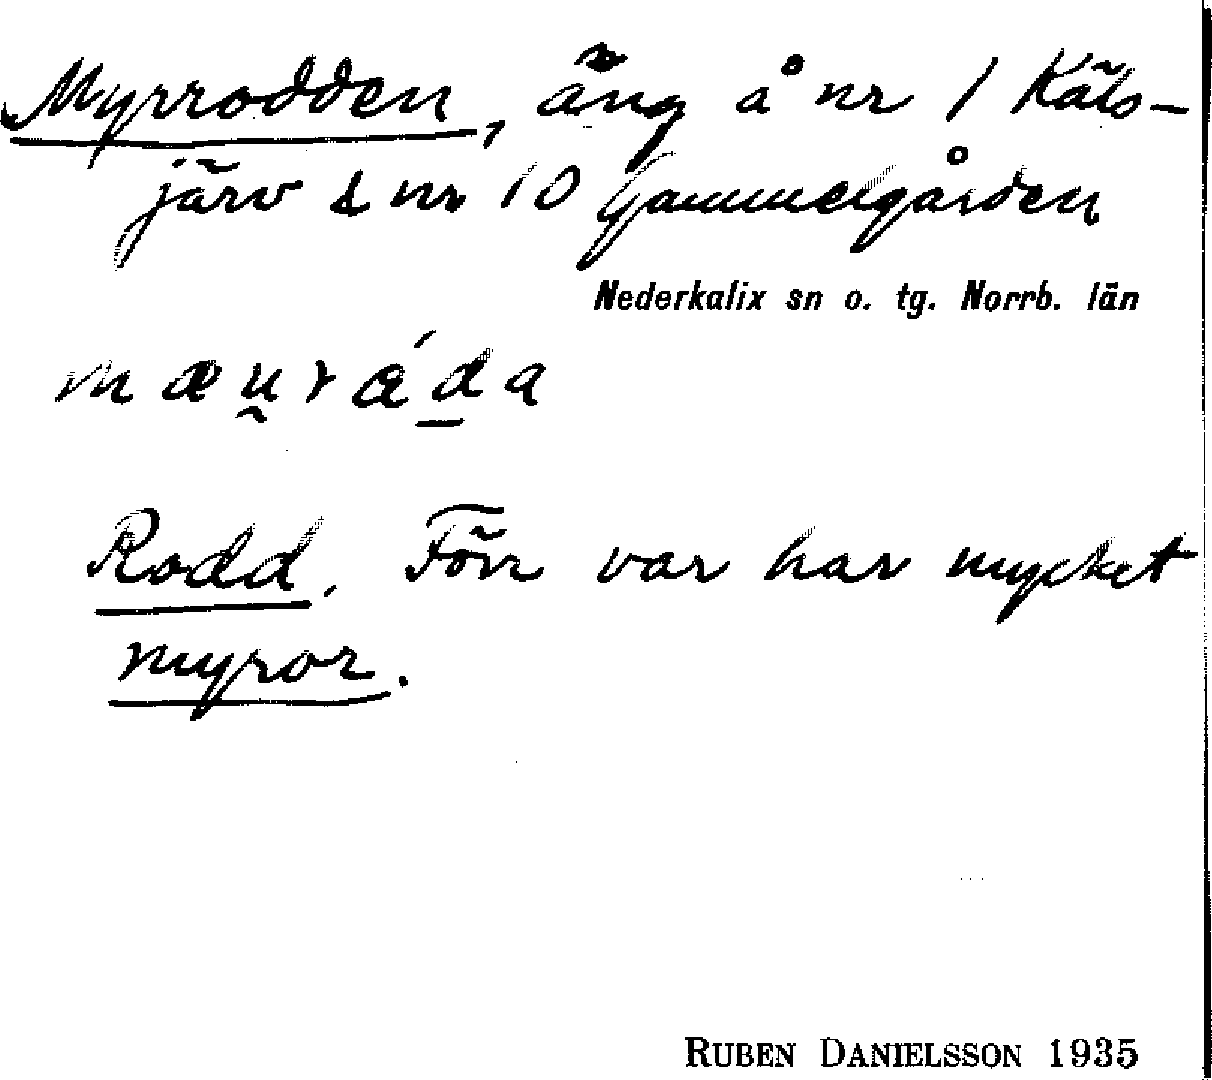 Myrrodden, äng å nr 1 Käls-
järv & nr 10 Gammelgården
Nederkalix sn o. tg. Norrb. län
mæu̯rǽda
Rodd. Förr var här mycket
myror.
RUBEN DANIELSSON 1935